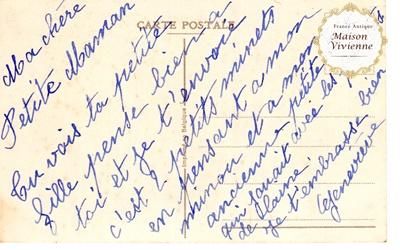 CARTE POSTALE
France Antique
Maison
Vivienne
Ma chère
Petite Maman
Tu vois ta petite
fille pense bien à
toi et je t'envoie
c'est 2 petits minets
en pensant a mon
minou et a mon
ancienne petite
qui jouait avec les
de laine
je t'embrasse bien
Genevieve